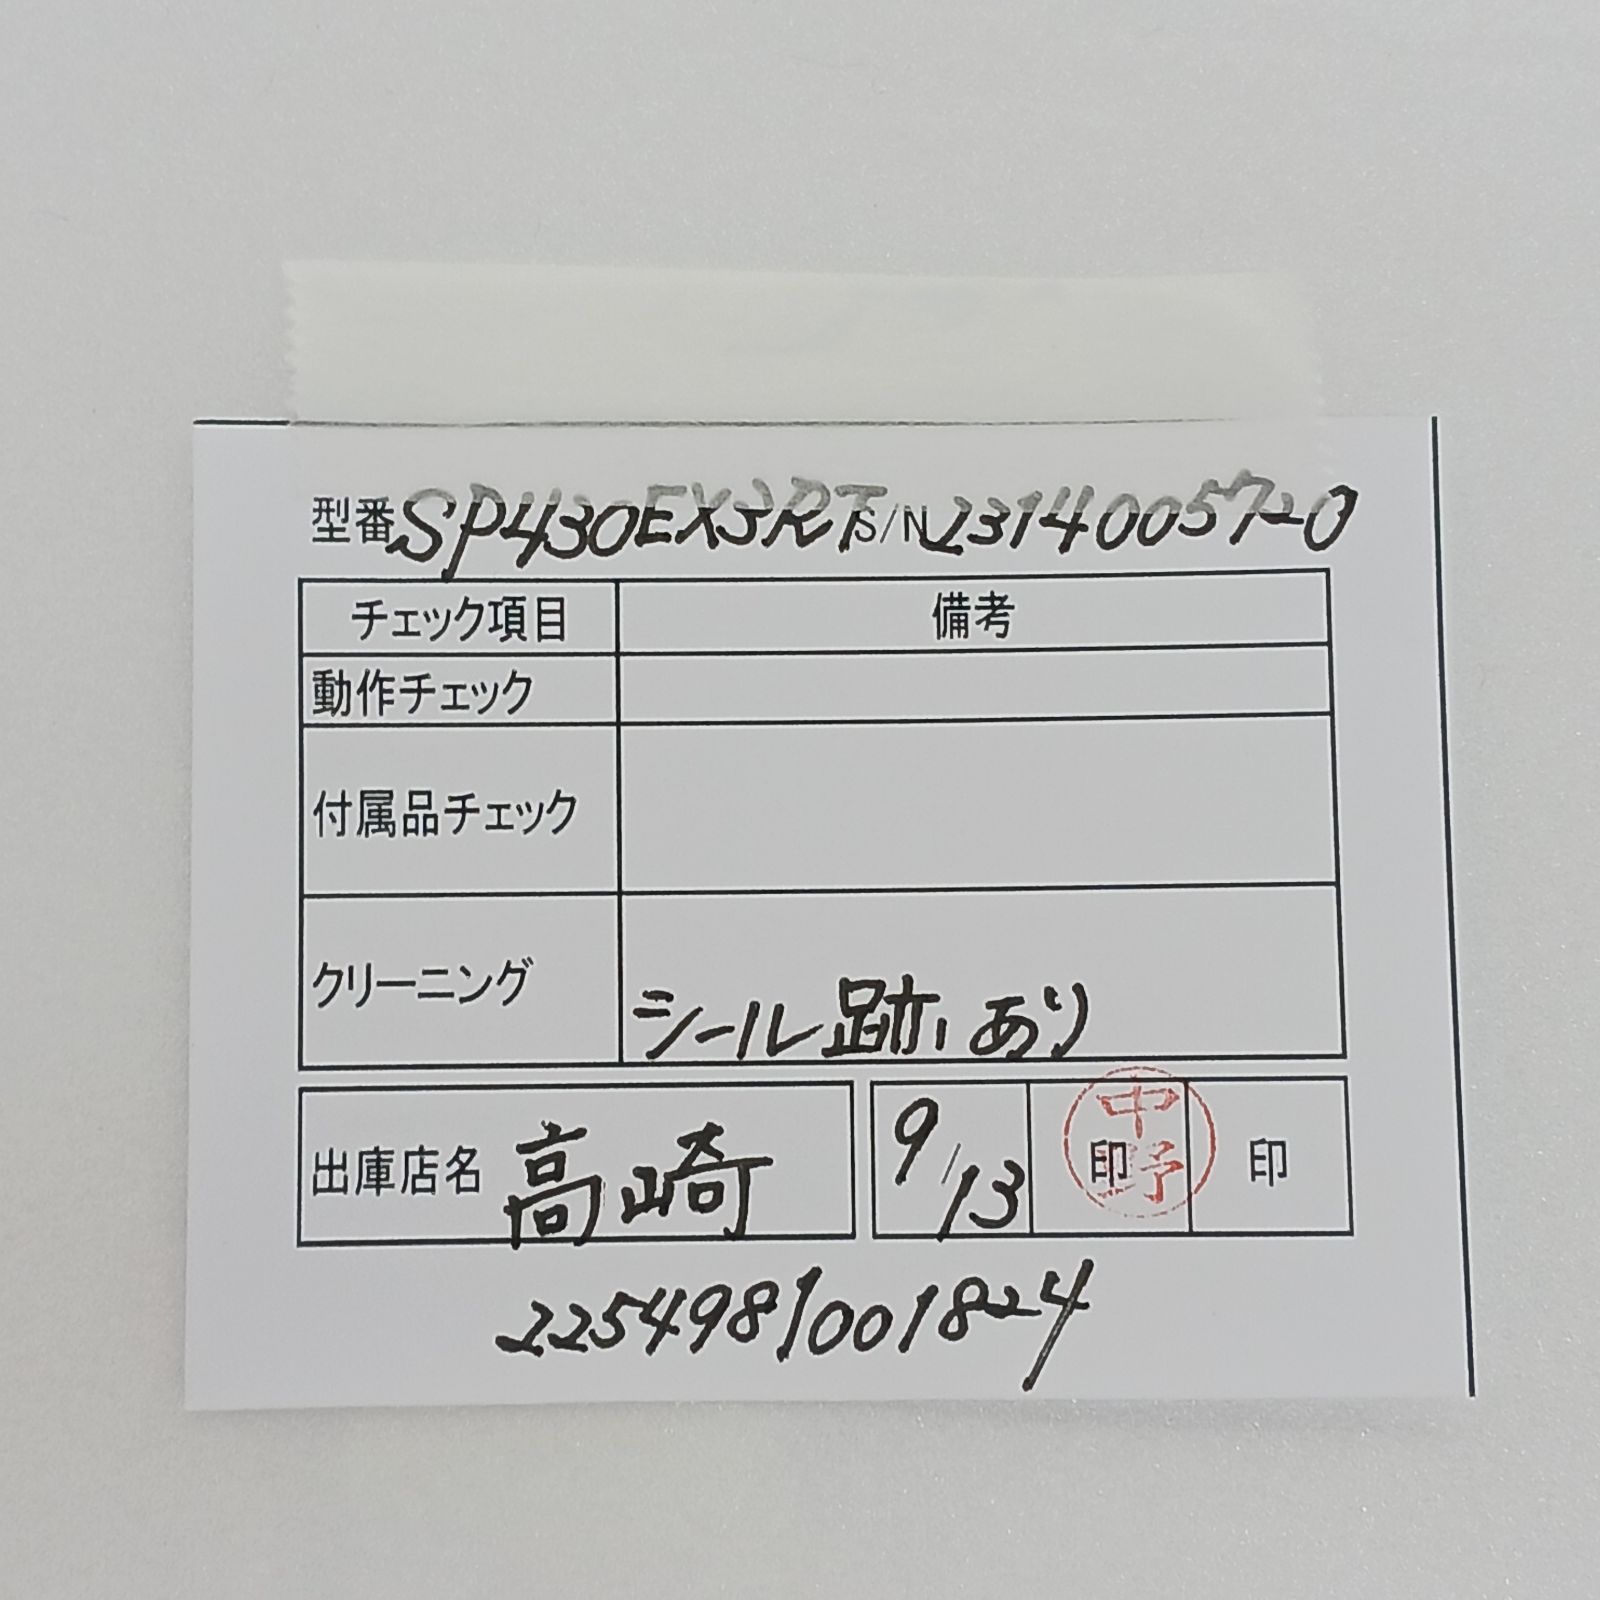 型番 SP430EX3RT S/N 2314005720
チェック項目 備考
動作チェック
付属品チェック
クリーニング シール跡あり
出庫店名 高崎 9/13 印 中野 印
2254981001824